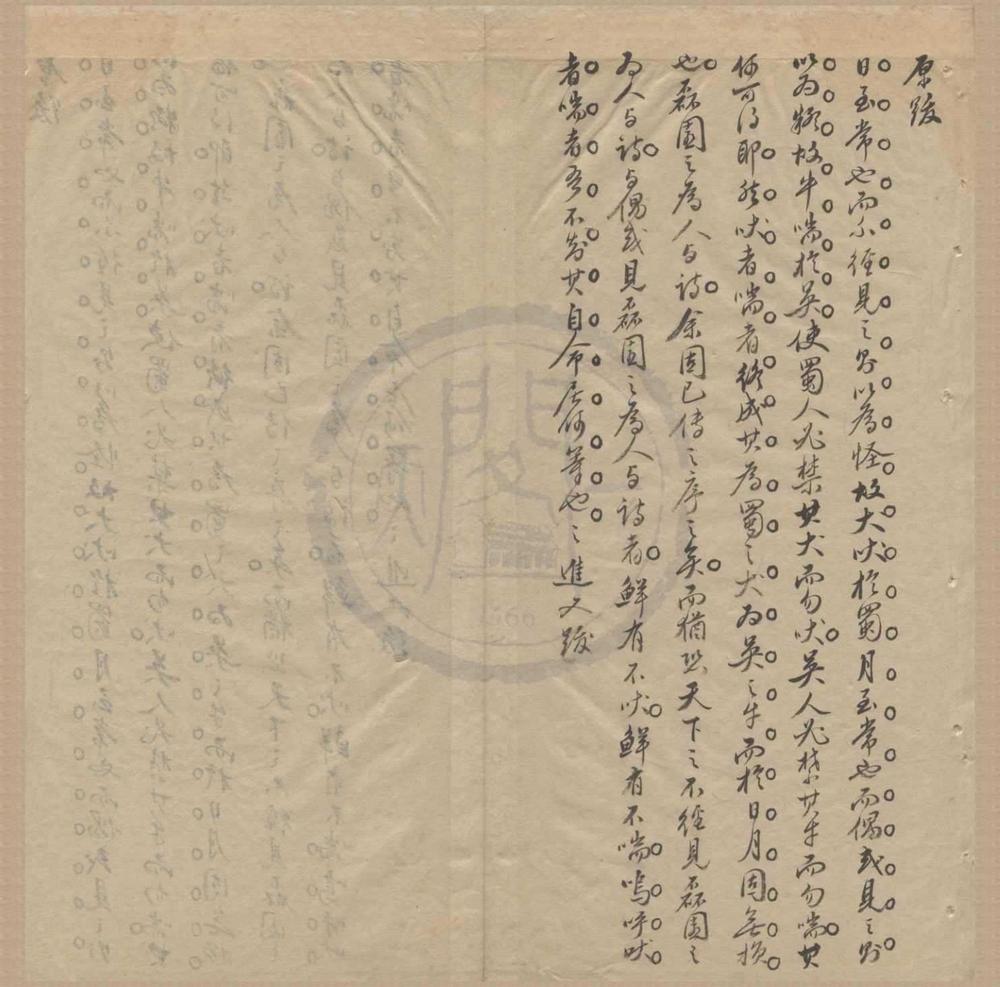 原跋
日至常也而不徑見之則以為怪故犬吠於蜀月至常也而偶或見之則
以為類故牛喘於吳使蜀人必禁其犬而勿吠吳人必禁其牛而勿喘其
何可得耶然吠者喘者終成其為蜀之犬為吳之牛而於日月固無損
也磊園之為人与詩余固已傳之序之矣而猶恐天下之不徑見磊園之
為人与詩与偶或見磊園之為人与詩者鮮有不吠鮮有不喘嗚呼吠
者喘者吾不知其自命居何等也之進又跋